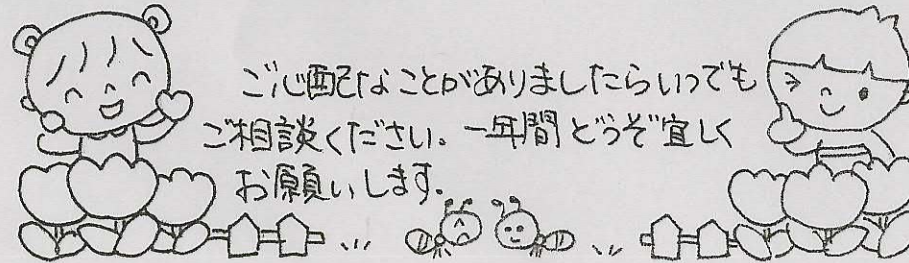 ご心配なことがありましたらいつでも
ご相談ください。一年間どうぞ宜しく
お願いします。